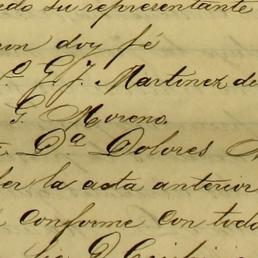 su representante
doy fé
G. J. Martinez de
G. Moreno
Dª Dolores
la acta anterior
conforme con todo